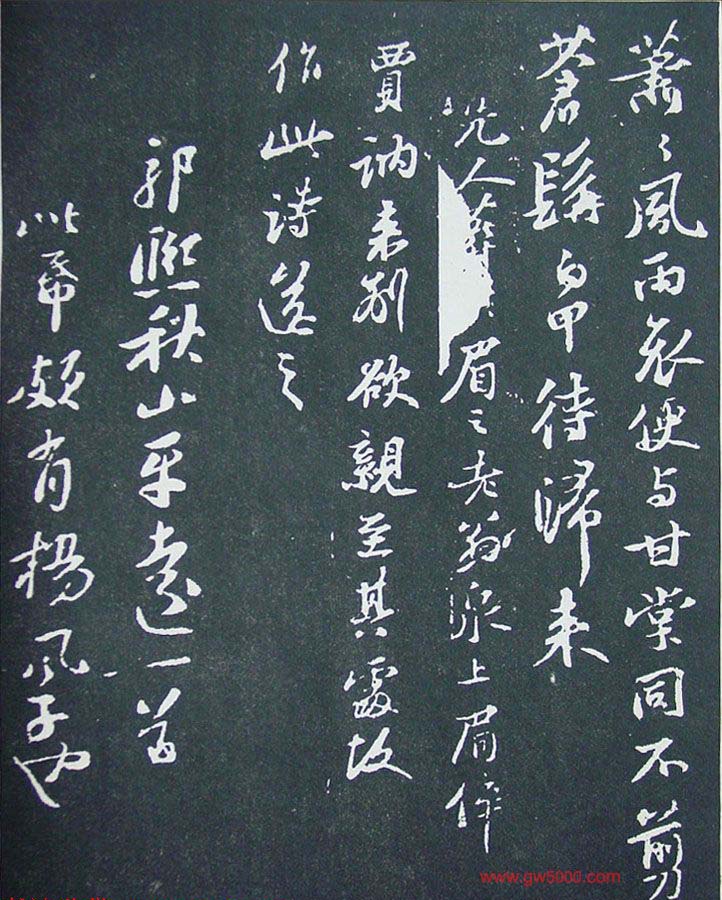 蕭〻風雨哀便与甘棠同不翦
蒼髯白甲待歸来
先人葬眉之老翁泉上眉倅
賈訥未別欲親至其處故
作此詩送之
郭熙秋山平遠一首
此帋頗有楊風子也
www.gw5000.com